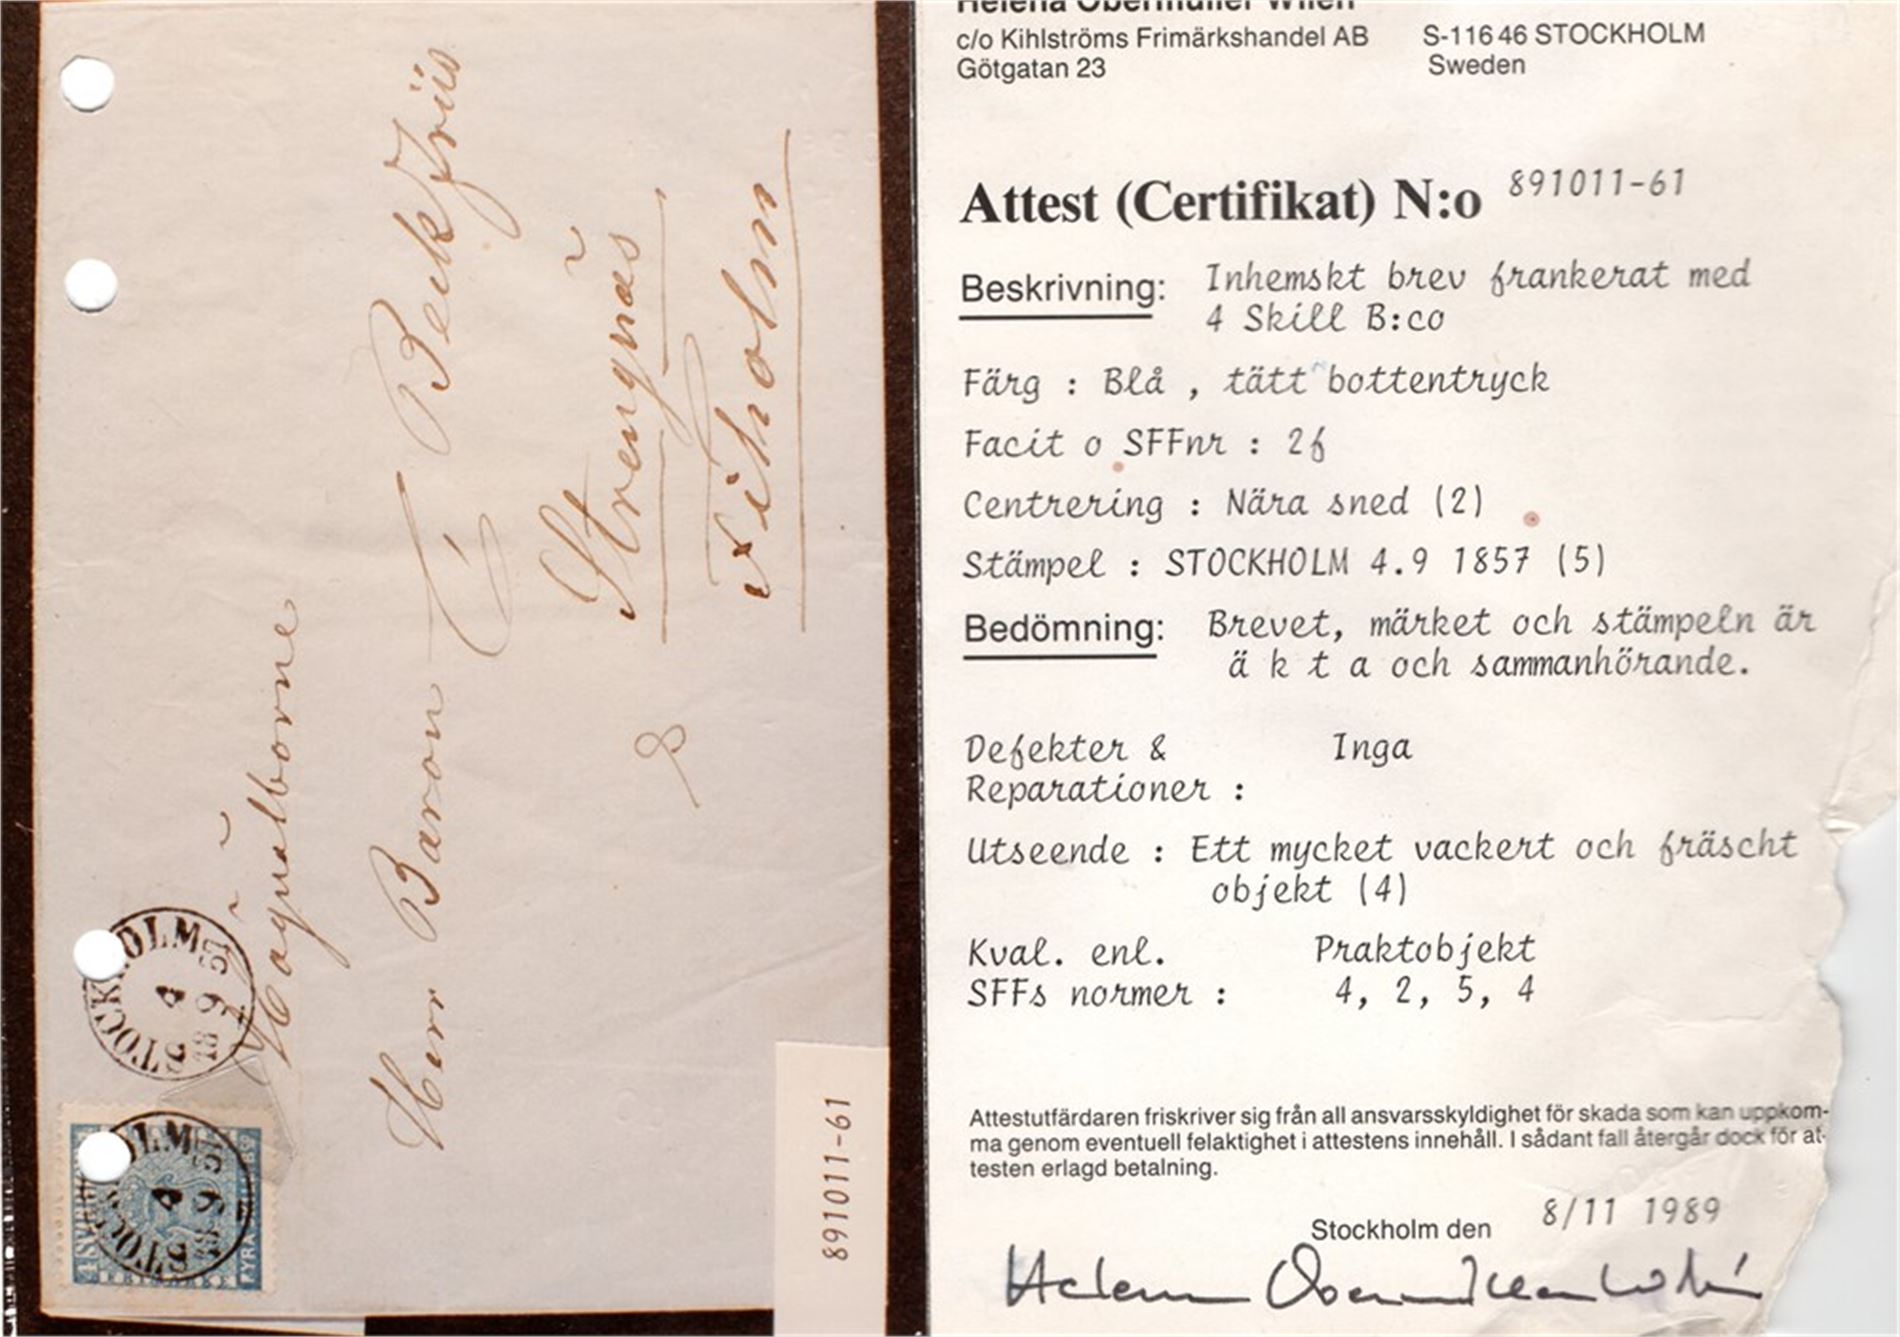 Högvälborne
Herr Baron C Beckfriis
Strengnäs
Fiholm
STOCKHOLM
4
9
1857
STOCKHOLM
4
9
1857
SVERIGE
FRIMÄRKE
FYRA
891011-61
Helena Obermüller Wilén
c/o Kihlströms Frimärkshandel AB S-116 46 STOCKHOLM
Götgatan 23 Sweden
Attest (Certifikat) N:o 891011-61
Beskrivning: Inhemskt brev frankerat med
4 Skill B:co
Färg : Blå , tätt bottentryck
Facit o SFFnr : 2f
Centrering : Nära sned (2)
Stämpel : STOCKHOLM 4.9 1857 (5)
Bedömning: Brevet, märket och stämpeln är
ä k t a och sammanhörande.
Defekter & Inga
Reparationer :
Utseende : Ett mycket vackert och fräscht
objekt (4)
Kval. enl. Praktobjekt
SFFs normer : 4, 2, 5, 4
Attestutfärdaren friskriver sig från all ansvarsskyldighet för skada som kan uppkom-
ma genom eventuell felaktighet i attestens innehåll. I sådant fall återgår dock för at-
testen erlagd betalning.
Stockholm den 8/11 1989
Helena Obermüller Wilén